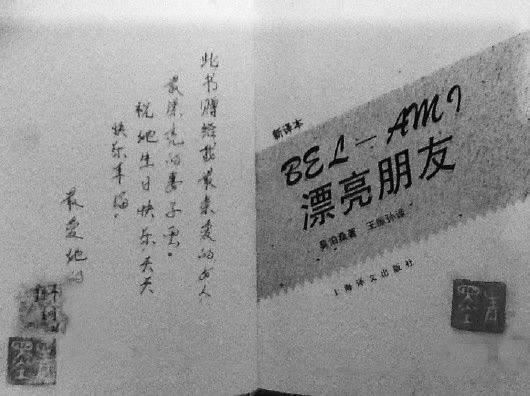 此书赠给我最亲爱的女人
最漂亮的妻子
祝她生日快乐,天天
快乐幸福。
最爱她的
新译本
BEL—AMI
漂亮朋友
莫泊桑著 王振孙译
上海译文出版社